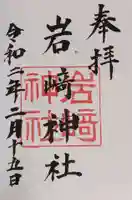 奉拝
岩﨑神社
令和二年二月十五日
岩﨑
神社